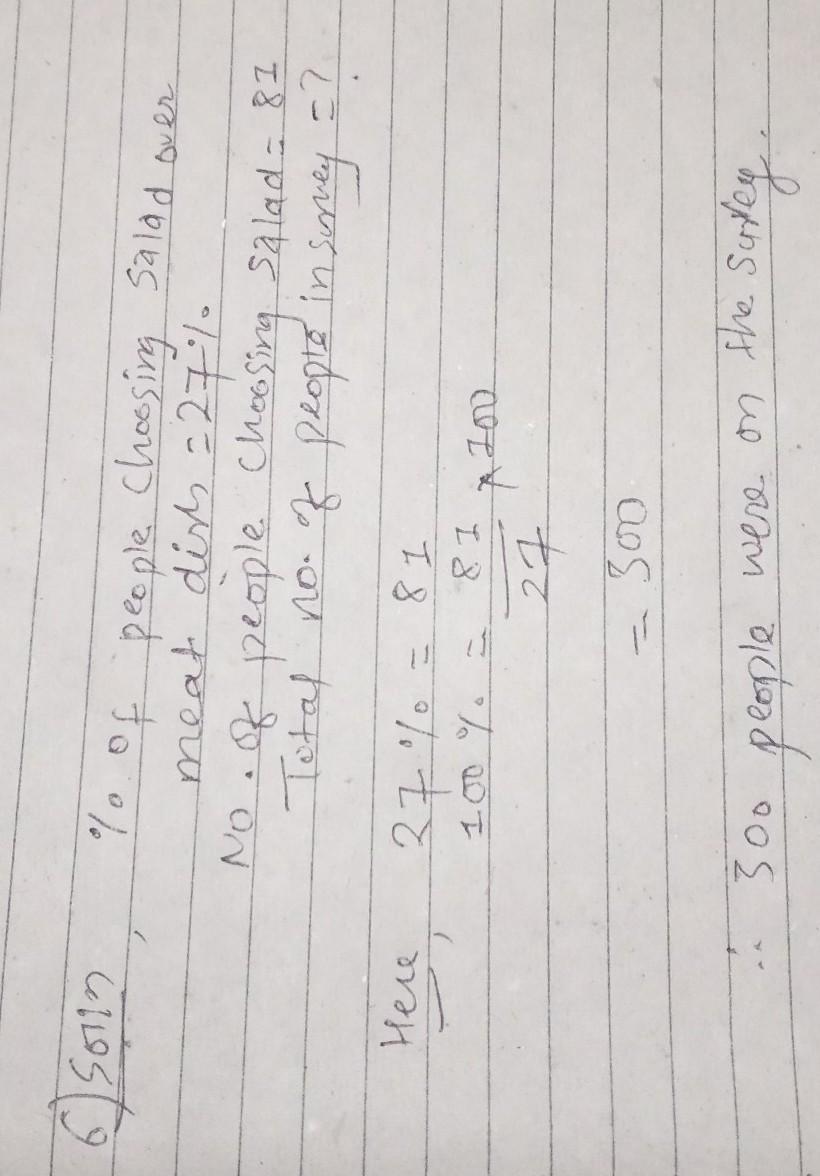 6) Solln, % of people choosing salad over
meat dish = 27%
No. of people choosing salad = 81
Total no. of people in survey = ?
Here, 27% = 81
100% = 81 × 100
27
= 300
∴ 300 people were on the survey.